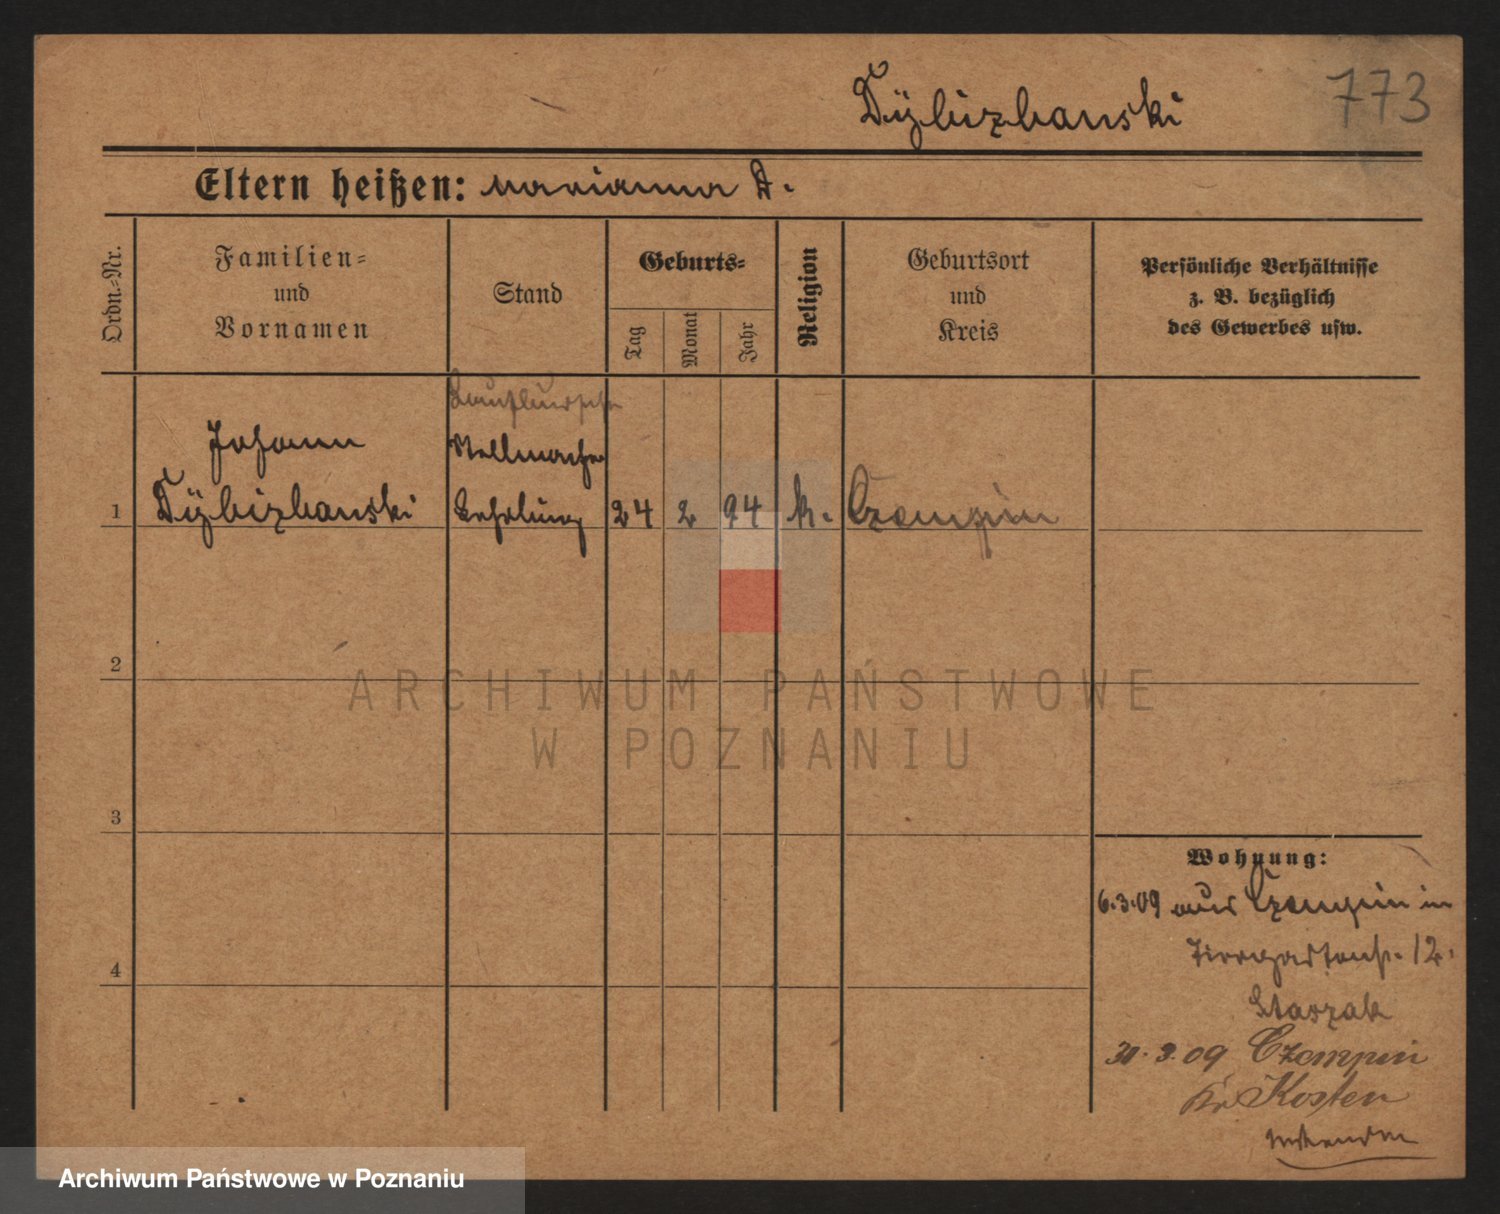 Dÿbizbanski 773
Eltern heißen: Marianna D.
Ordn.-Nr.
Familien-
und
Vornamen
Stand
Geburts-
Tag
Monat
Jahr
Religion
Geburtsort
und
Kreis
Persönliche Verhältnisse
z. B. bezüglich
des Gewerbes usw.
Laufbursche
Johann
Stellmacher
1 Dÿbizbanski Lehrling 24 2 94 k. Czempin
2
3
4
Wohnung:
6.3.09 aus Czempin in
Tiergartenstr. 12.
Staszak
31.3.09 Czempin
Kr Kosten
ARCHIWUM PAŃSTWOWE
W POZNANIU
Archiwum Państwowe w Poznaniu